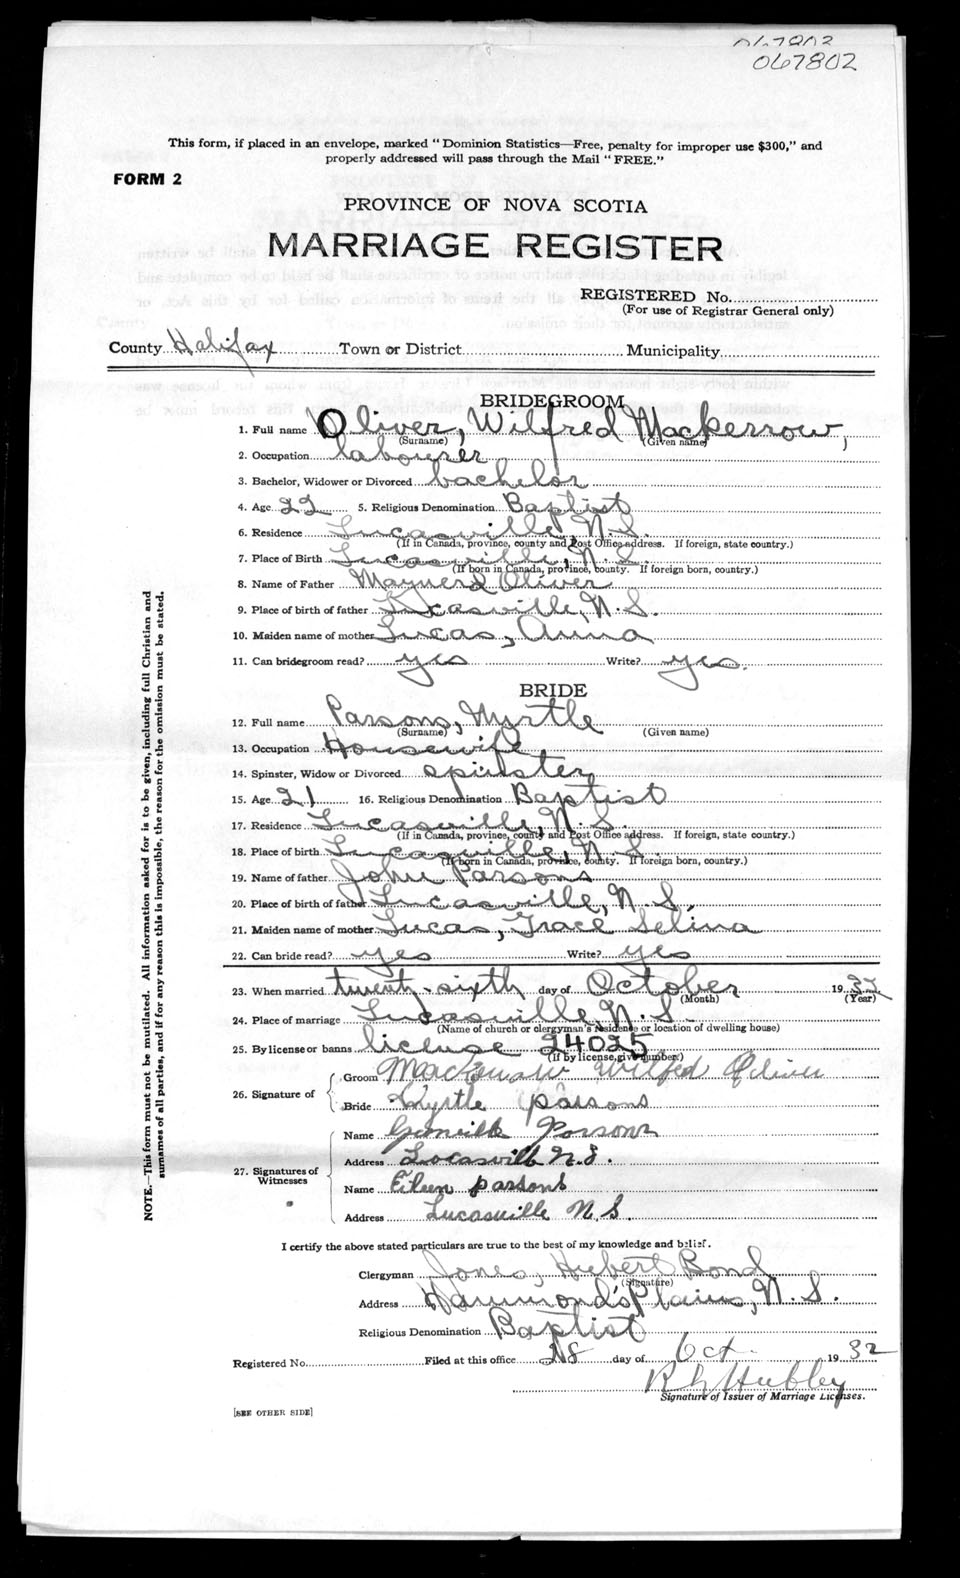 067802
067802
This form, if placed in an envelope, marked "Dominion Statistics—Free, penalty for improper use $300," and
properly addressed will pass through the Mail "FREE."
FORM 2
PROVINCE OF NOVA SCOTIA
MARRIAGE REGISTER
REGISTERED No.
(For use of Registrar General only)
County Halifax Town or District Municipality
BRIDEGROOM
1. Full name Oliver, Wilfred Mackerrow,
(Surname) (Given name)
2. Occupation labourer
3. Bachelor, Widower or Divorced bachelor
4. Age 22 5. Religious Denomination Baptist
6. Residence Lucasville, N.S.
(If in Canada, province, county and Post Office address. If foreign, state country.)
7. Place of Birth Lucasville, N.S.
(If born in Canada, province, county. If foreign born, country.)
8. Name of Father Maynerd Oliver
9. Place of birth of father Lucasville, N.S.
10. Maiden name of mother Lucas, Anna
11. Can bridegroom read? yes Write? yes.
BRIDE
12. Full name Parsons, Myrtle
(Surname) (Given name)
13. Occupation Housewife
14. Spinster, Widow or Divorced spinster
15. Age 21 16. Religious Denomination Baptist
17. Residence Lucasville, N.S.
(If in Canada, province, county and Post Office address. If foreign, state country.)
18. Place of birth Lucasville, N.S.
(If born in Canada, province, county. If foreign born, country.)
19. Name of father John Parsons
20. Place of birth of father Lucasville, N.S.
21. Maiden name of mother Lucas, Grace Selina
22. Can bride read? yes Write? yes
23. When married twenty-sixth day of October 1932
(Month) (Year)
24. Place of marriage Lucasville, N.S.
(Name of church or clergyman's residence or location of dwelling house)
25. By license or banns license 24025
(If by license, give number.)
26. Signature of
Groom Mackerrow Wilfred Oliver
Bride Myrtle parsons
27. Signatures of
Witnesses
Name Parsons
Address Lucasville N.S.
Name Eileen parsons
Address Lucasville N.S.
I certify the above stated particulars are true to the best of my knowledge and belief.
Clergyman Jones, Hubert Bond
(Signature)
Address Hammond's Plains, N.S.
Religious Denomination Baptist
Registered No. Filed at this office 28 day of Oct. 1932
R Hubley
Signature of Issuer of Marriage Licenses.
[SEE OTHER SIDE]
NOTE.—This form must not be mutilated. All information asked for is to be given, including full Christian and
surnames of all parties, and if for any reason this is impossible, the reason for the omission must be stated.